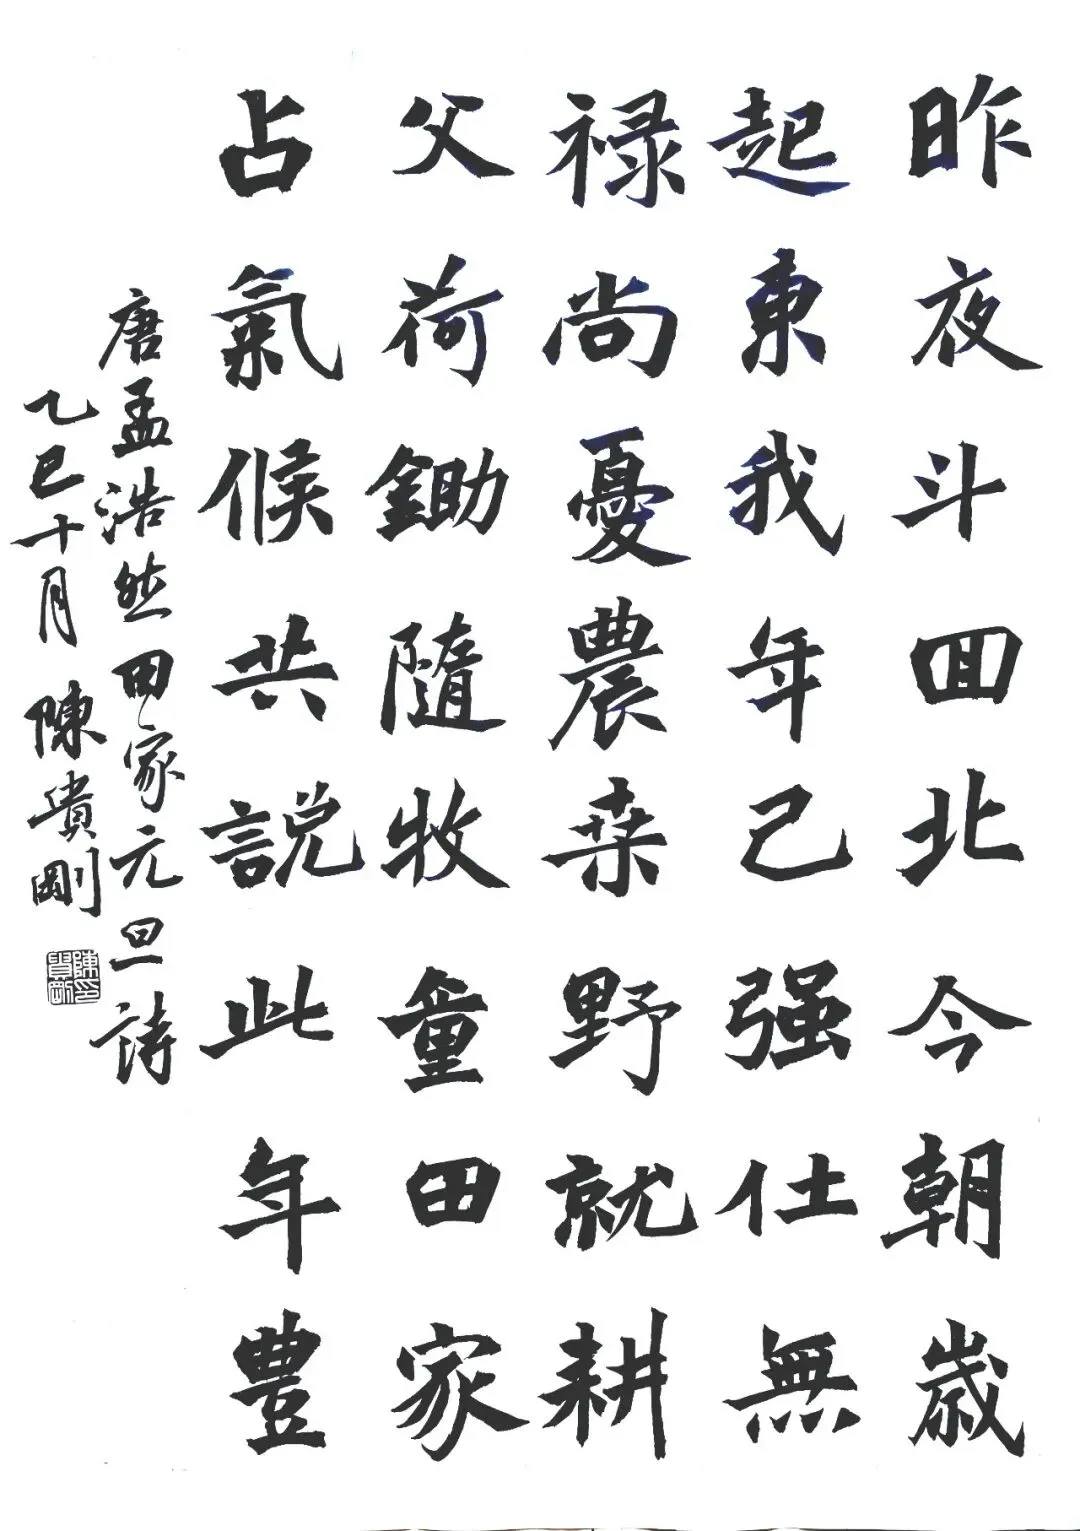 昨夜斗回北今朝歲
起東我年已强仕無
禄尚憂農桒野就耕
父荷鋤隨牧童田家
占氣候共説此年豊
唐孟浩然田家元旦詩
乙巳十月陳貴剛
陳貴剛印